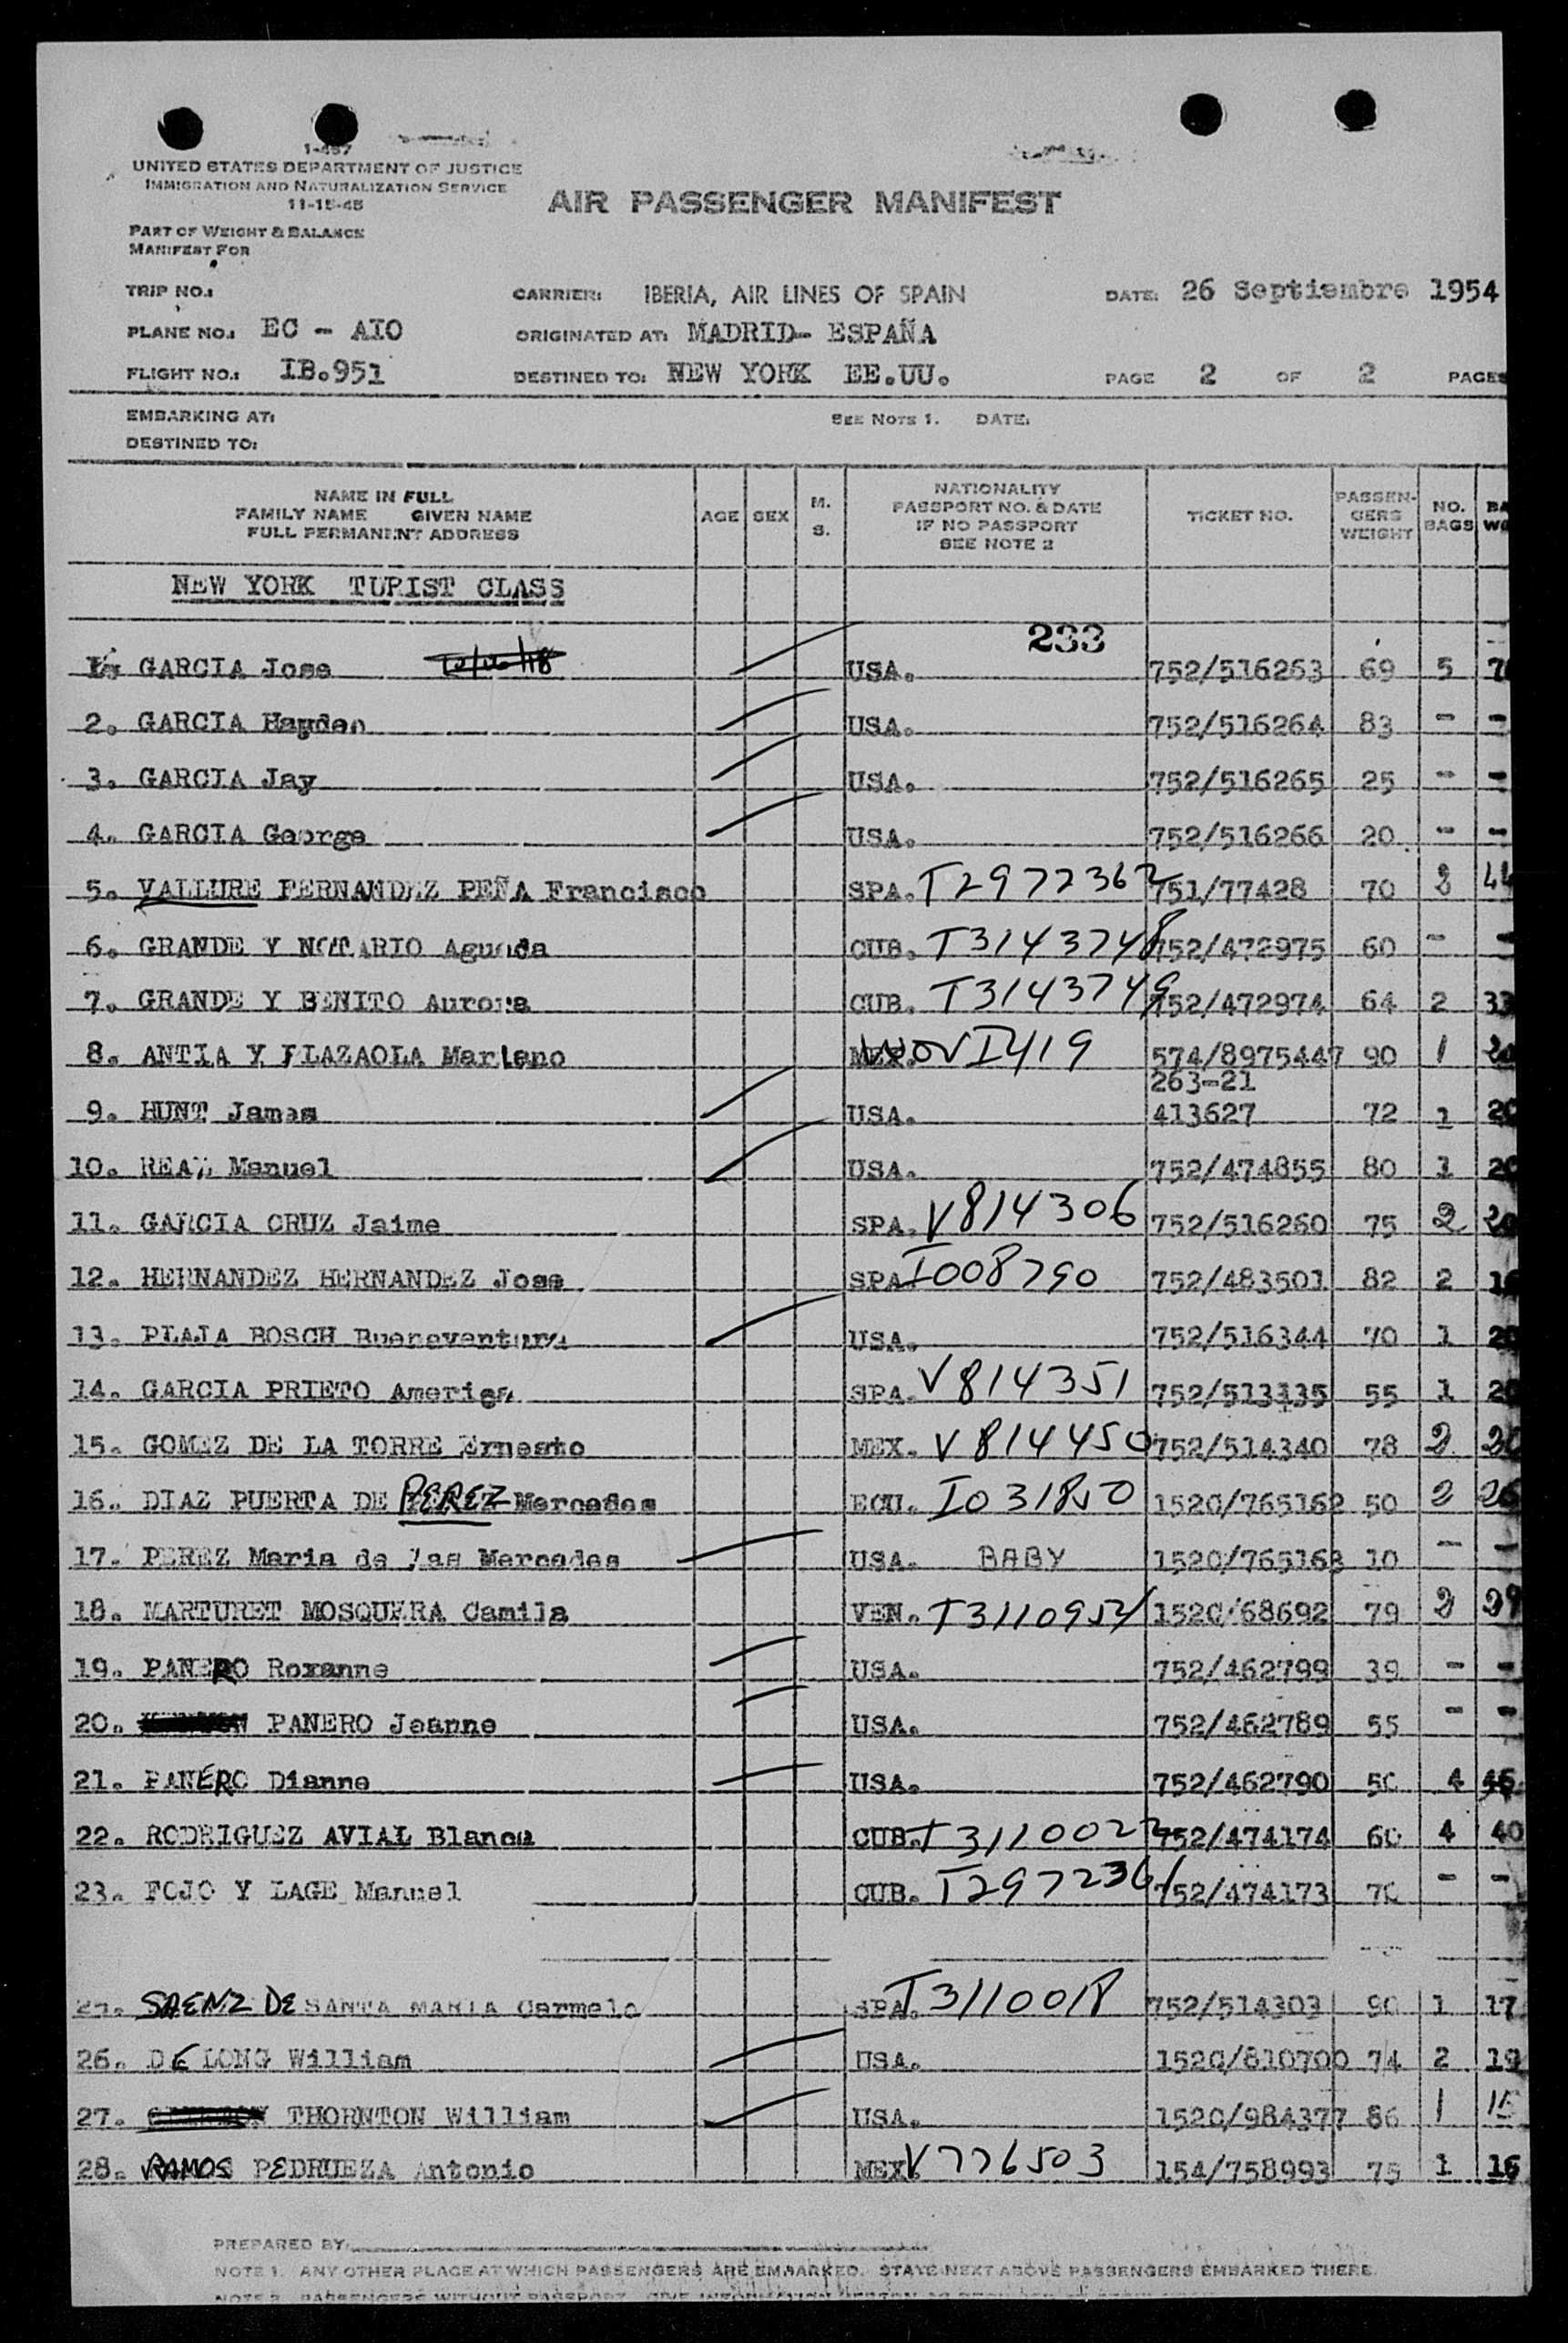 1-457
UNITED STATES DEPARTMENT OF JUSTICE
IMMIGRATION AND NATURALIZATION SERVICE
11-15-45
AIR PASSENGER MANIFEST
PART OF WEIGHT & BALANCE
MANIFEST FOR
TRIP NO.: CARRIER: IBERIA, AIR LINES OF SPAIN DATE: 26 Septiembre 1954
PLANE NO.: EC - AIO ORIGINATED AT: MADRID- ESPAÑA
FLIGHT NO.: IB.951 DESTINED TO: NEW YORK EE.UU. PAGE 2 OF 2 PAGES
EMBARKING AT: SEE NOTE 1. DATE:
DESTINED TO:
NAME IN FULL
FAMILY NAME GIVEN NAME
FULL PERMANENT ADDRESS
AGE SEX M. S.
NATIONALITY
PASSPORT NO. & DATE
IF NO PASSPORT
SEE NOTE 2
TICKET NO.
PASSEN-
GERS
WEIGHT
NO.
BAGS
NEW YORK TURIST CLASS
233
1. GARCIA Jose USA. 752/516263 69 5
2. GARCIA Hayden USA. 752/516264 83 - -
3. GARCIA Jay USA. 752/516265 25 - -
4. GARCIA George USA. 752/516266 20 - -
5. VALLURE FERNANDEZ PEÑA Francisco SPA. T2972362 751/77428 70 2 44
6. GRANDE Y NOTARIO Agueda CUB. T3143748 752/472975 60 - -
7. GRANDE Y BENITO Aurora CUB. T3143749 752/472974 64 2 33
8. ANTIA Y FLAZAOLA Mariano MEX. 574/8975447 90 1 20
263-21
9. HUNT James USA. 413627 72 1 20
10. REAZ Manuel USA. 752/474855 80 1 20
11. GARCIA CRUZ Jaime SPA. V814306 752/516260 75 2 20
12. HERNANDEZ HERNANDEZ Jose SPA. I008790 752/483501 82 2
13. PLAJA BOSCH Buenaventura USA. 752/516344 70 1 20
14. GARCIA PRIETO America SPA. V814351 752/513135 55 1 20
15. GOMEZ DE LA TORRE Ernesto MEX. V814450 752/514340 78 2
16. DIAZ PUERTA DE PEREZ Mercedes ECU. I031850 152C/765162 50 2 26
17. PEREZ Maria de las Mercedes USA. BABY 152C/765163 10 - -
18. MARTURET MOSQUERA Camila VEN. T3110954 152C/68692 79 2 29
19. PANERO Roxanne USA. 752/462799 39 - -
20. PANERO Jeanne USA. 752/462789 55 - -
21. PANERO Dianne USA. 752/462790 50 4 46
22. RODRIGUEZ AVIAL Blanca CUB. T3110022 752/474174 60 4 40
23. FOJO Y LAGE Manuel CUB. T2972361 752/474173 70 - -
SAENZ DE SANTA MARIA Carmelo SPA. T3110018 752/514303 90 1 17
26. DE LONG William USA. 152C/810700 74 2 19
27. THORNTON William USA. 152C/984377 86 1 15
28. RAMOS PEDRUEZA Antonio MEX. V776503 154/758993 75 1 16
PREPARED BY:
NOTE 1. ANY OTHER PLACE AT WHICH PASSENGERS ARE EMBARKED. STATE NEXT ABOVE PASSENGERS EMBARKED THERE.